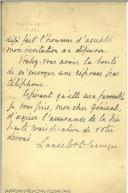 déjà fait l'honneur d'accepter
mon invitation au déjeuner.
Voulez-vous avoir la bonté
de m'envoyer une réponse par
téléphone.
Espérant qu'elle sera favorable
je vous prie, mon cher Général,
d'agréer l'assurance de la très
haute considération de votre
dévoué